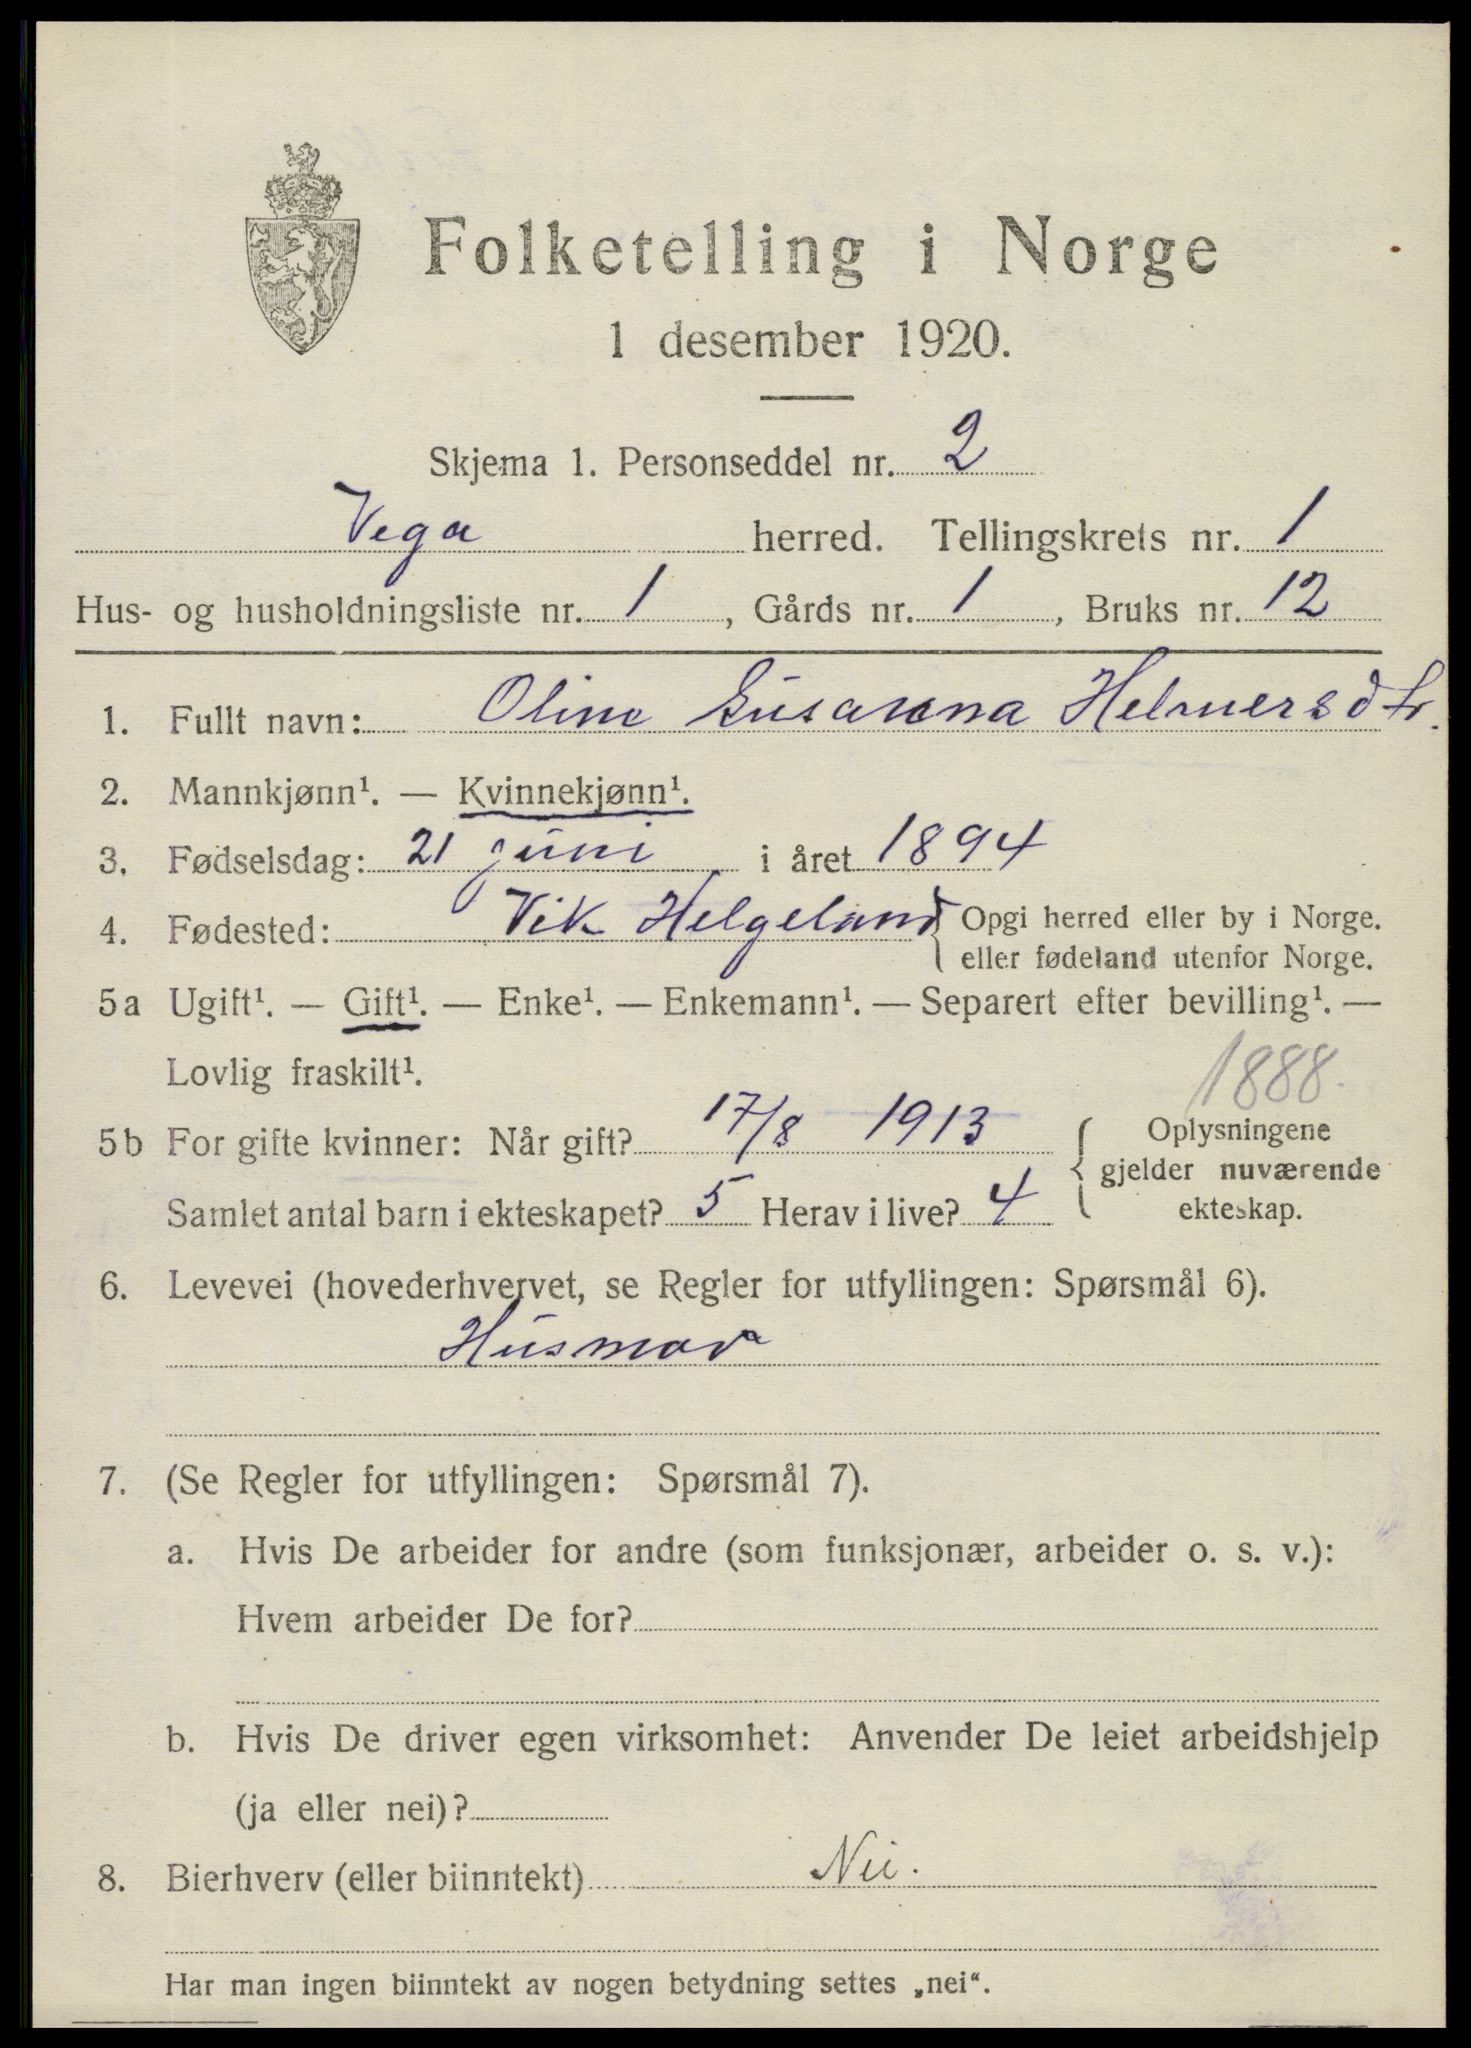 Folketelling i Norge
1 desember 1920.
Skjema 1. Personseddel nr. 2
Vega herred. Tellingskrets nr. 1
Hus- og husholdningsliste nr. 1, Gårds nr. 1, Bruks nr. 12
1. Fullt navn: Oline Susanna Helmersdtr.
2. Mannkjønn¹. — Kvinnekjønn¹.
3. Fødselsdag: 21 juni i året 1894
4. Fødested: Vik Helgeland { Opgi herred eller by i Norge.
eller fødeland utenfor Norge.
5a Ugift¹. — Gift¹. — Enke¹. — Enkemann¹. — Separert efter bevilling¹. —
Lovlig fraskilt¹.
1888.
5b For gifte kvinner: Når gift? 17/8 1913 { Oplysningene
gjelder nuværende
Samlet antal barn i ekteskapet? 5 Herav i live? 4 ekteskap.
6. Levevei (hovederhvervet, se Regler for utfyllingen: Spørsmål 6).
Husmor
7. (Se Regler for utfyllingen: Spørsmål 7).
a. Hvis De arbeider for andre (som funksjonær, arbeider o. s. v.):
Hvem arbeider De for?
b. Hvis De driver egen virksomhet: Anvender De leiet arbeidshjelp
(ja eller nei)?
8. Bierhverv (eller biinntekt) Nei.
Har man ingen biinntekt av nogen betydning settes „nei“.